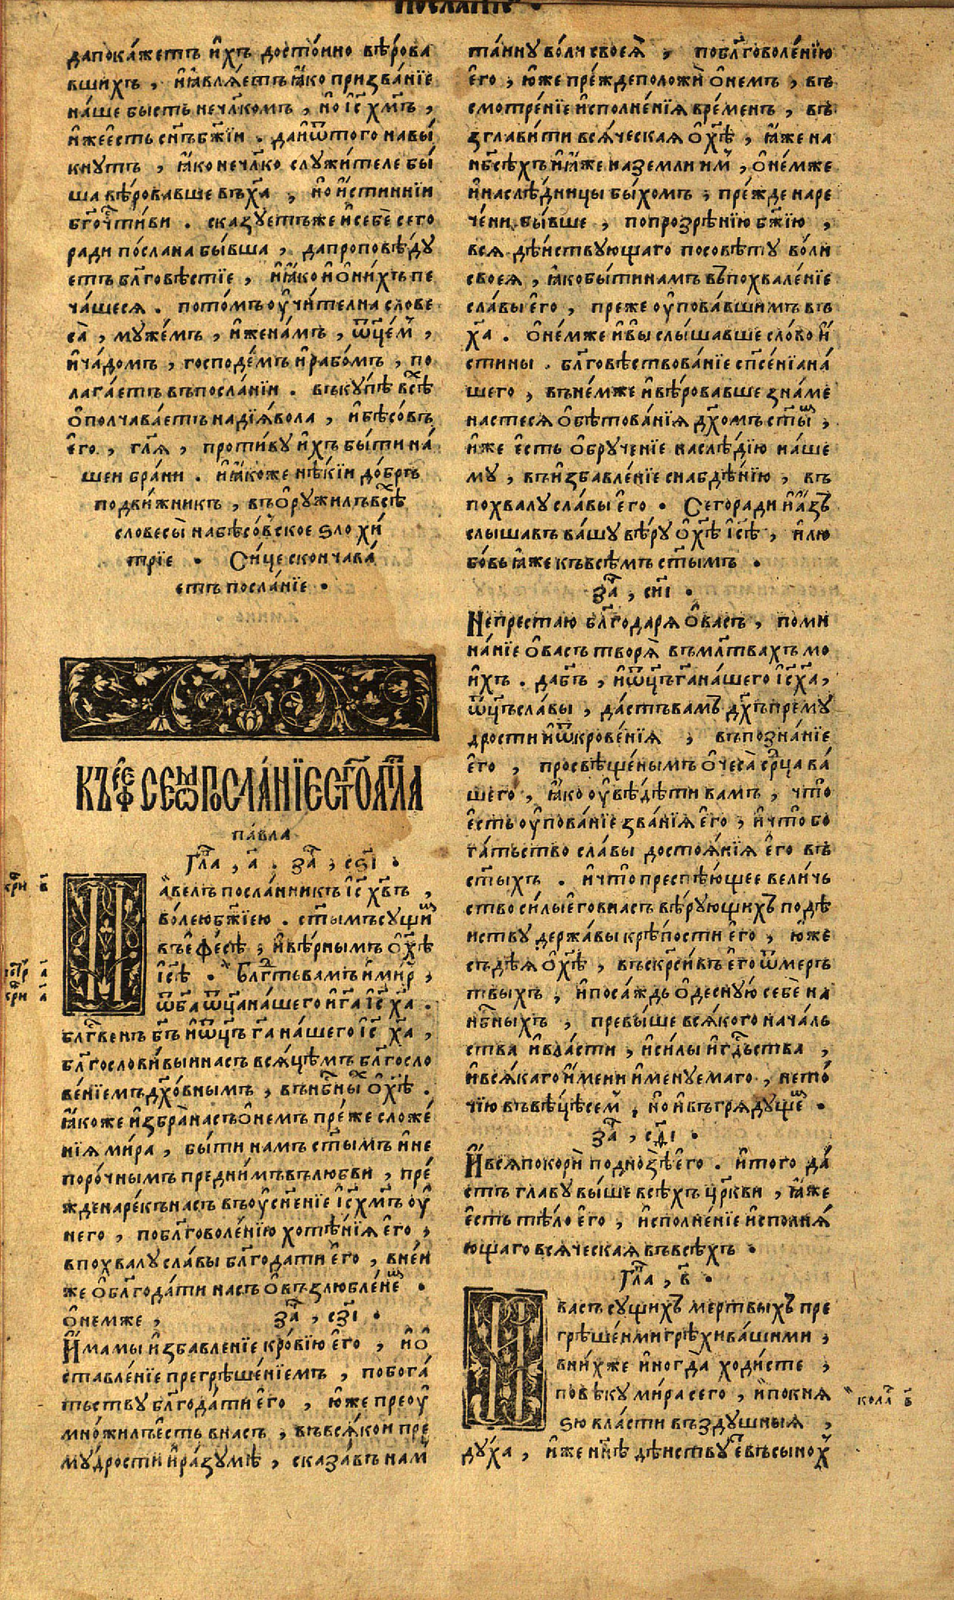 послание •
дапокажетъ и҆хъ достойно вѣрова
вшихъ, и҆ꙗ҆вляетъ ꙗ҆ко призваніе
наше бысть нечл҃комъ, но і҆с҃ хм҃ъ,
и҆же е҆сть сн҃ъ бж҃іи. да и҆ѿтого навы
кнутъ, ꙗ҆ко нечл҃ко служителе бы
ша вѣровавше въ ха҃, но и҆стинніи
бг҃очтⷭ҇иви. сказуетъже и҆ себе сего
ради послана бывша, дапроповѣду
етъ бл҃говѣстіе, и҆ ꙗ҆ко и҆ ѻ҆ нихъ пе
чашеся. потомъ оу҆чителна слове
са, мужемъ, и҆женамъ, ѿц҃емⷨ,
и҆чадомъ, господемъ и҆рабомъ, по
лагаетъ въпосланіи. въкупѣ всⷭ҇ѣ
ѻ҆полчаваетъ надіꙗвола, и҆бѣсовъ
е҆го, гл҃я, противу и҆хъ быти на
шеи брани. и҆ ꙗ҆коже нѣкіи добръ
подвижникъ, въѻ҆ружилъ всѣ
словесы набѣсовское ѕло хи
тріе • Сице скончава
етъ посланіе •
Къ е҆фесеѡмъ посланіе ст҃го а҆пⷭ҇ла
павла
Гл҃а, а҃. за҃, сѕ҃і •
авелъ посланникъ і҆с҃ хв҃ъ,
волею бж҃іею. ст҃ымъ сущиⷨ
въ е҆фесѣ, и҆ вѣрнымъ ѻ҆ хѣ҃
і҆сѣ҃ • Блгⷣть вамъ и҆ миръ,
ѿ бг҃а ѿц҃а нашего и҆ га҃ і҆с҃ ха҃.
блгⷭ҇венъ бг҃ъ и҆ ѿц҃ъ га҃ нашего і҆с҃ ха҃,
бл҃гословивыи насъ всяцѣмъ бл҃госло
веніемъ дх҃овнымъ, въ нбⷭ҇ныхъ ѻ҆ хѣ҃.
ꙗ҆коже и҆збра насъ ѻ҆ немъ преже сложе
нія мира, быти намъ ст҃ымъ и҆ не
порочнымъ предним въ любви, пре
жденарекъ насъ въ оу҆сн҃еніе і҆с҃ хм҃ъ оу҆
него, поблг҃оволенію хотѣнія е҆го,
впохвалу славы бл҃годати е҆го, вней
же ѻ҆бл҃годати насъ ѻ҆ възлюбленеⷨ •
ѻ҆ немже, за҃, сз҃і •
И҆мамы и҆збавленіе кровію е҆го, и҆ ѻ҆
ставленіе прегрѣшеніемъ, побога
тьству бл҃годати е҆го, ю҆же преоу҆
множилъ е҆сть внасъ, въвсякои пре
мудрости и҆ разумѣ, сказавъ нам
таину воли своея, побл҃говоленію
е҆го, ю҆же преждеположи ѻ҆ немъ, въ
смотреніе и҆сполненія временъ, въ
зглавити всяческая ѻ҆ хѣ҃, ꙗ҆же на
нб҃сѣхъ и҆ ꙗ҆же на земли и҆мⷨ, ѻ҆ немже
и҆ наслѣдницы быхомъ, прежде наре
чени бывше, попрозрѣнію бж҃ію,
вся дѣиствующаго посовѣту воли
своея, ꙗ҆кобытинамъ въпохваленіе
славы е҆го, преже оу҆повавшимъ въ
ха҃. ѻ҆ немже и҆ вы слышавше слово и҆
стины. бл҃говѣствованіе сп҃сенія на
шего, въ немже и҆ вѣровавше знаме
настеся ѻ҆бѣтованія дх҃омъ ст҃ымⷨ,
и҆же е҆сть ѻ҆бручение наслѣдію наше
му, въ и҆збавленіе снабдѣнію, въ
похвалу славы е҆го • Сего ради и҆ а҆зъ
слышавъ вашу вѣру ѻ҆ хѣ҃ і҆сѣ҃, и҆ лю
бовь ꙗ҆же къ всѣмъ ст҃ымъ •
за҃, си҃і •
Непрестаю бл҃годаря ѻ҆ васъ, поми
наніе ѻ҆ васъ творя въ млт҃вахъ мо
и҆хъ. да бг҃ъ, и҆ ѿц҃ъ га҃ нашего і҆с҃ ха҃,
ѿц҃ъ славы, дастъ вамъ дх҃ъ прему
дрости и҆ ѿкровенія, въ познаніе
е҆го, просвѣщенымъ ѻ҆чеса срⷣца ва
шего, ꙗ҆ко оу҆вѣдѣти вамъ, что
е҆сть оу҆пованіе званія е҆го, и҆ что бо
гатьство славы достоянія е҆го въ
ст҃ыхъ. и҆ что преспѣющее величь
ство силы е҆го внасъ вѣрующихъ подѣ
иству державы крѣпости е҆го, ю҆же
съдѣя ѻ҆ хѣ҃, въскреси въ е҆го ѿ мерт
твыхъ, и҆ посаждь ѻ҆десную себе на
нбⷭ҇ныхъ, превыше всякого началь
ства и҆ власти, и҆ силы и҆ гдⷭ҇ьства,
и҆ всякаго и҆мени и҆менуемаго, нето
чію въ вѣцѣ семⷨ, но и҆ въ грядущеⷨ •
за҃, сѳ҃і •
И҆ вся покори под нозѣ е҆го. и҆ того да
стъ главу выше всѣхъ црⷪ҇кви, ꙗ҆же
е҆сть тѣло е҆го, и҆сполненіе и҆сполня
ющаго всяческая въ всѣхъ •
Гл҃а, в҃ •
васъ сущихъ мертвыхъ пре
грѣшеними грѣхи вашими,
внихже и҆ногда ходисте,
повѣку мира сего, и҆ покня
ѕю власти въздушныя,
духа, и҆же нн҃ѣ дѣиствуеⷮ въ сынохⷯ
кола в҃